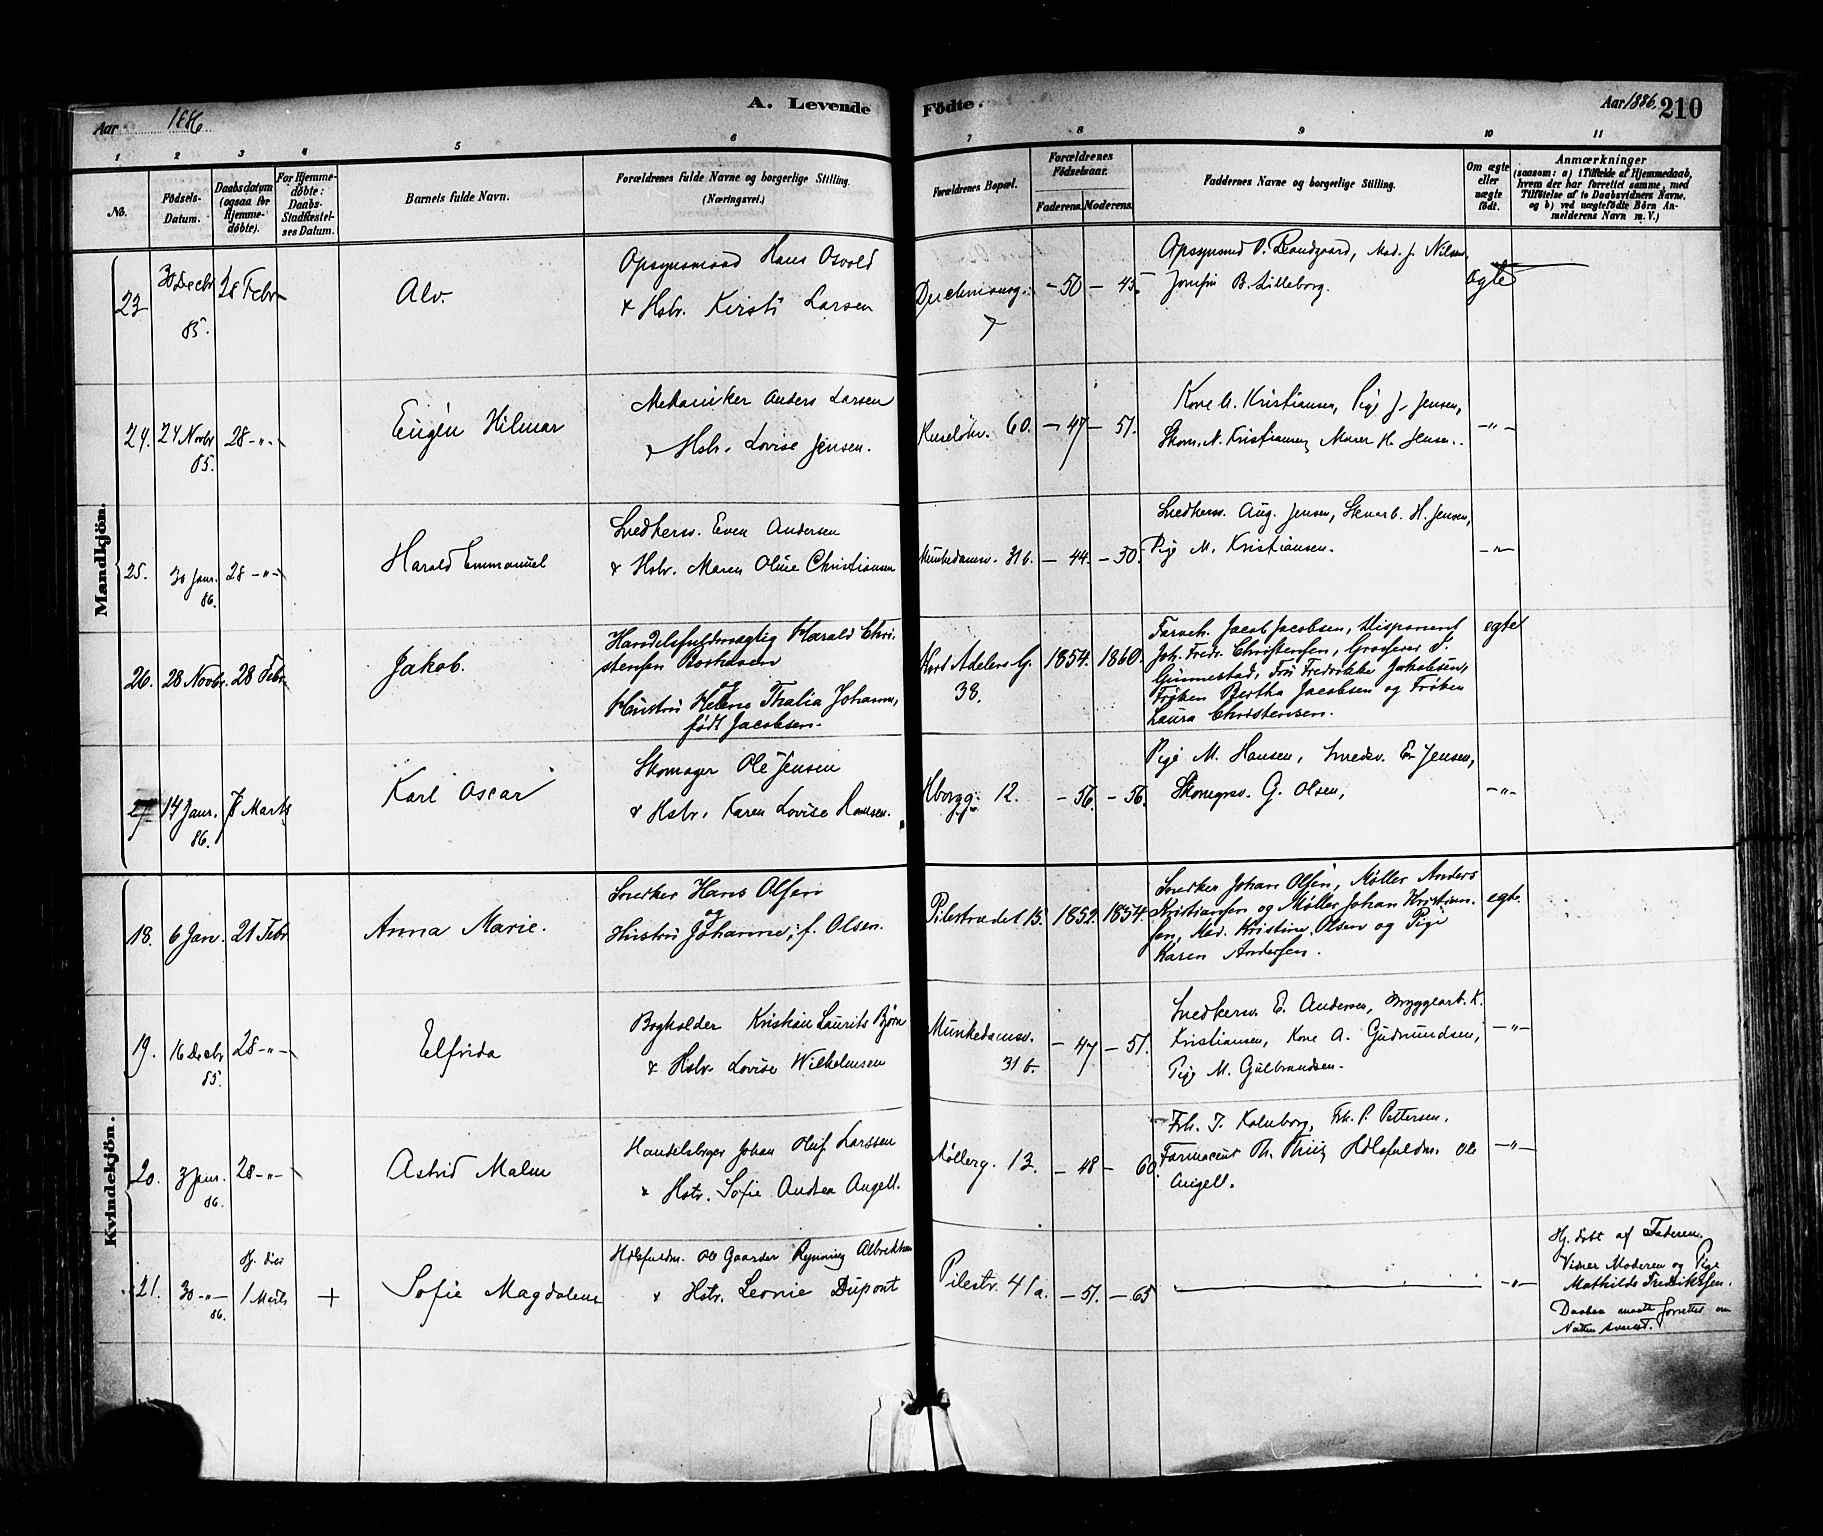 Aar 1886
A. Levende
Födte.
Aar 1886. 210
1 2 3 4 5 6 7 8 9 10 11
No.
Födsels-
Datum.
Daabsdatum
(ogsaa for
Hjemme-
döbte).
For Hjemme-
döbte:
Daabs-
Stadfæstel-
ses Datum.
Barnets fulde Navn.
Forældrenes fulde Navne og borgerlige Stilling.
(Næringsvei.)
Forældrenes Bopæl.
Forældrenes
Födselsaar.
Faderens. Moderens.
Faddernes Navne og borgerlige Stilling.
Om ægte
eller
uægte
födt.
Anmærkninger
(saasom: a) i Tilfælde af Hjemmedaab,
hvem der har forrettet samme, med
Tilföielse af to Daabsvidners Navne.
og b) ved uægtefödte Börn An-
melderens Navn m. V.)
Mandkjön.
23
30 Decbr
85.
28 Febr
Alv.
Opsynsmand Hans Osvold
& Hstr. Kirsti Larsen
7
- 50 - 45.
B. Lilleborg.
ægte
24. 24 Novbr
85.
28 -"-
Eugén Hilmar
Mekaniker Anders Larsen
& Hstr. Lovise Jensen.
60. - 47 - 51.
Kone A. Kristiansen, Pige J. Jensen,
Skom. N. Kristiansen, Murer H. Jensen.
-"-
25. 30 Janr.
86.
28 -"-
Harald Emmanuel
Snedkersv. Even Andersen
& Hstr. Maren Oline Christiansen
Munkedamsv. 31 b. - 44. - 50.
Snedkersv. Aug. Jensen, H. Jensen,
Pige M. Kristiansen.
-"-
26. 28 Novbr. 28 Febr
Jakob.
Handelsfuldmægtig Harald Chri-
stensen
og
Hustru Helene Thalia Johanne,
født Jacobsen.
Kort Adelers G.
38.
1854. 1860.
Jacob Jacobsen, Disponent
Joh. Fredr. Christensen, Grosserer S.
Gimmestad, Fru Fredrikke Jakobsen,
Frøken Bertha Jacobsen og Frøken
Laura Christensen.
egte
27 14 Janr.
86.
7 Marts
Karl Oscar
Skomager Ole Jensen
& Hstr. Karen Lovise Hansen.
12. - 56. - 56.
Pige M. Hansen, Smedsv. E. Jensen,
G. Olsen,
-"-
Kvindekjön.
18. 6 Jan. 21 Febr
Anna Marie.
Snedker Hans Olsen
og
Hustru Johanne, f. Olsen.
Pilestrædet 15. 1852. 1854.
Snedker Johan Olsen, Møller Anders
Kristiansen og Møller Johan Kristian-
sen, Mad. Kristine Olsen og Pige
Karen Andersen.
egte.
19. 16 Decbr
85.
28 -"-
Elfrida
Bogholder Kristian Laurits Bjørn
& Hstr. Lovise Wilhelmsen
Munkedamsv.
31 b.
- 47 - 51.
Snedkersv. E. Andersen, Bryggearb. K.
Kristiansen, Kone A. Gudmundsen,
Pige M. Gulbrandsen.
-"-
20. 3 Janr.
86.
28 -"-
Astrid Malm
Handelsbrger Johan Oluf Larssen
& Hstr. Sofie Andrea Angell.
Møllerg. 13. - 48 - 60.
Frk. P. Pettersen.
Farmaceut Th. Hdlsfuldm. Ole
Angell.
-"-
21. 30 -"-
86.
1 Marts
+
Sofie Magdalena
Hdlsfuldm. Ole Gaarder Rynning Albrektsen
& Hstr. Leonie Dupont
Pilestr. 41 a. - 51. - 65
-"-
Hj. døbt af Faderen.
Vidner Moderen og Pige
Mathilde Fredriksen.
Daaben maatte forrettes om
Natten